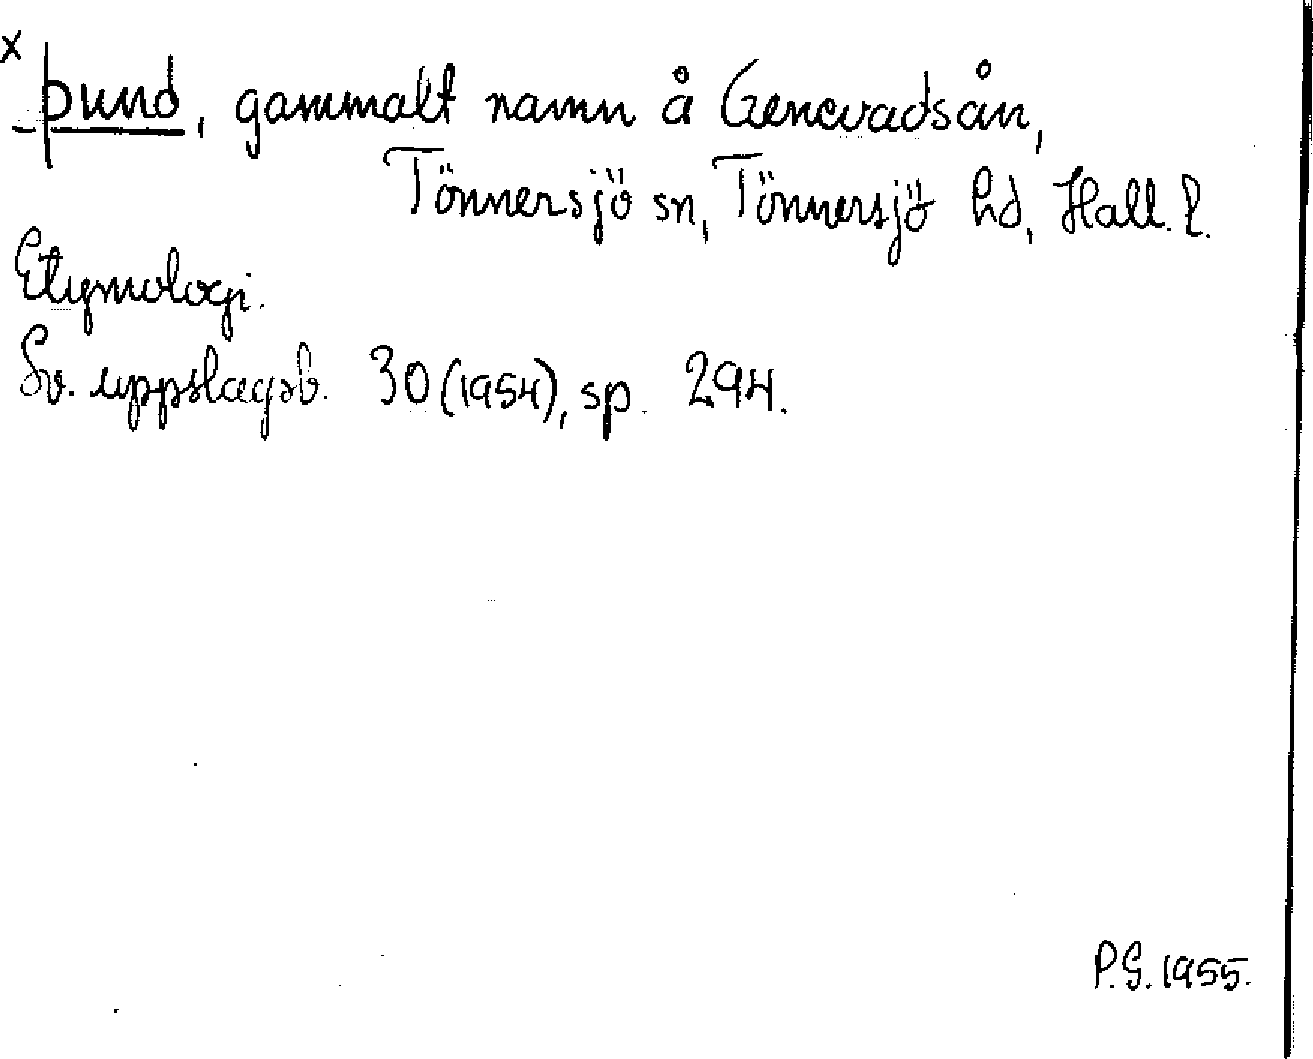 x þund, gammalt namn å Genevadsån,
Tönnersjö sn, Tönnersjö hd, Hall. l.
Etymologi.
Sv. uppslagsb. 30 (1954), sp. 294.
P.G. 1955.